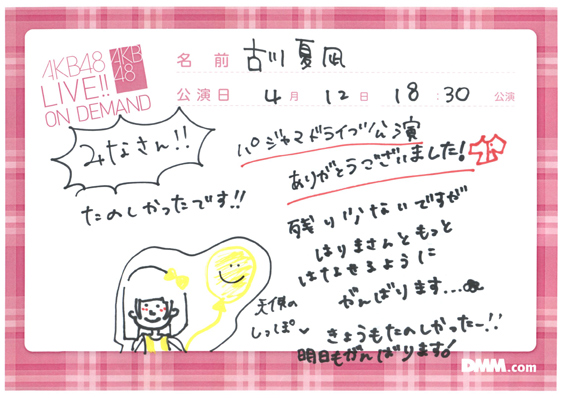 AKB48
LIVE!!
ON DEMAND
AKB
48
名前 古川夏凪
公演日 4月12日 18:30 公演
みなさん!!
たのしかったです!!
パジャマドライブ公演
ありがとうございました!
残り少ないですが
はりまさんともっと
はなせるように
がんばります...
天使の
しっぽ
きょうもたのしかったー!!
明日もがんばります!
DMM.com